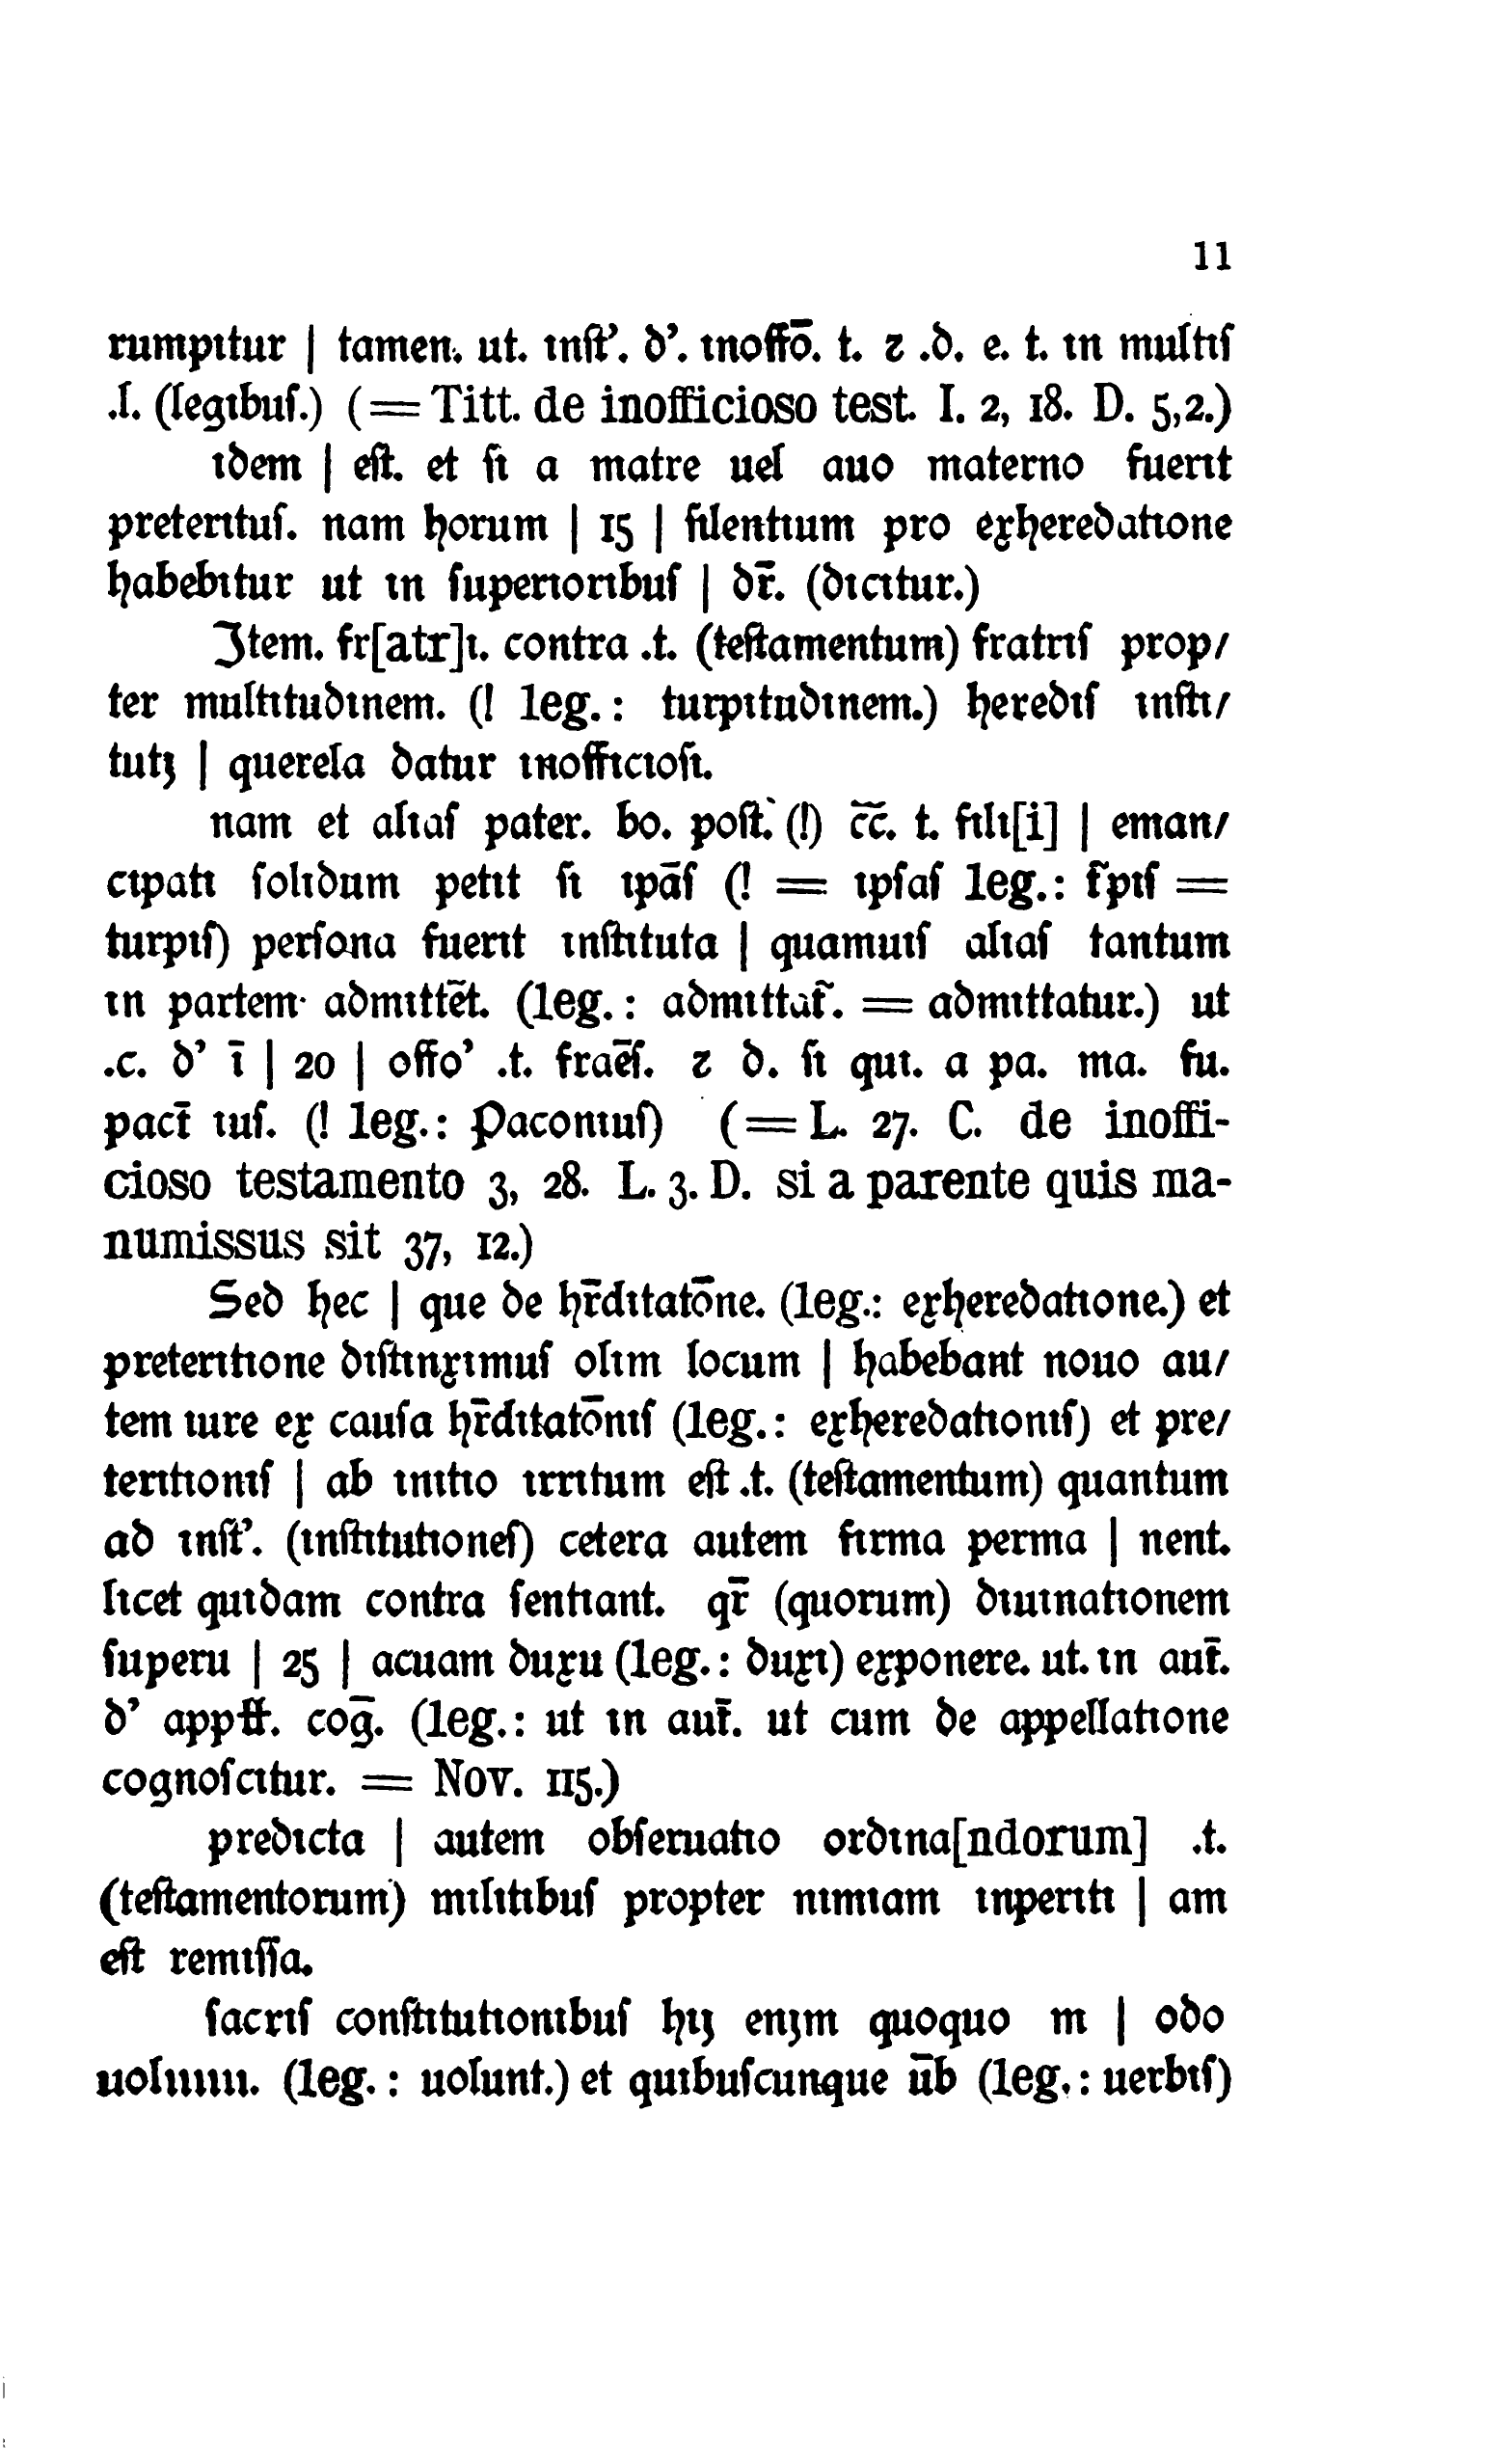 11
rumpıtur | tamen. ut. ınſt’. d’. ınoffō. t. ⁊ .d. e. t. ın multıſ
.l. (legıbuſ.) (= Titt. de inofficioso test. I. 2, 18. D. 5,2.)
ıdem | eſt. et ſı a matre uel auo materno fuerıt
preterıtuſ. nam horum | 15 | ſılentıum pro exheredatıone
habebıtur ut ın ſuperıorıbuſ | dr̄. (dıcıtur.)
Item. fr[atr]ı. contra .t. (teſtamentum) fratrıſ prop/
ter multıtudınem. (! leg.: turpıtudınem.) heredıſ ınſtı/
tutȷ | querela datur ınoffıcıoſı.
nam et alıaſ pater. bo. poſt.̀ (!) c̄c̄. t. fılı[i] | eman/
cıpatı ſolıdum petıt ſı ıpāſ (! = ıpſaſ leg.: t̄pıſ =
turpıſ) perſona fuerıt ınſtıtuta | quamuıſ alıaſ tantum
ın partem· admıttēt. (leg.: admıttat̄. = admıttatur.) ut
.c. d’ ī | 20 | offo’ .t. fraēſ. ⁊ d. ſı quı. a pa. ma. fu.
pact̄ ıuſ. (! leg.: Paconıuſ) (= L. 27. C. de inoffi-
cioso testamento 3, 28. L. 3. D. si a parente quis ma-
numissus sit 37, 12.)
Sed hec | que de hr̄dıtatōne. (leg.: exheredatıone.) et
preterıtıone dıſtınxımuſ olım locum | habebant nouo au/
tem ıure ex cauſa hr̄dıtatōnıſ (leg.: exheredatıonıſ) et pre/
terıtıonıſ | ab ınıtıo ırrıtum eſt .t. (teſtamentum) quantum
ad ınſt’. (ınſtıtutıoneſ) cetera autem fırma perma | nent.
lıcet quıdam contra ſentıant. qr̄ (quorum) dıuınatıonem
ſuperu | 25 | acuam duxu (leg.: duxı) exponere. ut. ın aut̄.
d’ appꝉꝉ. coḡ. (leg.: ut ın aut̄. ut cum de appellatıone
cognoſcıtur. = Nov. 115.)
predıcta | autem obſeruatıo ordına[ndorum] .t.
(teſtamentorum) mılıtıbuſ propter nımıam ınperıtı | am
eſt remıſſa.
ſacrıſ conſtıtutıonıbuſ hıȷ enȷm quoquo m | odo
uolıııııı. (leg.: uolunt.) et quıbuſcunque ūb (leg.: uerbıſ)